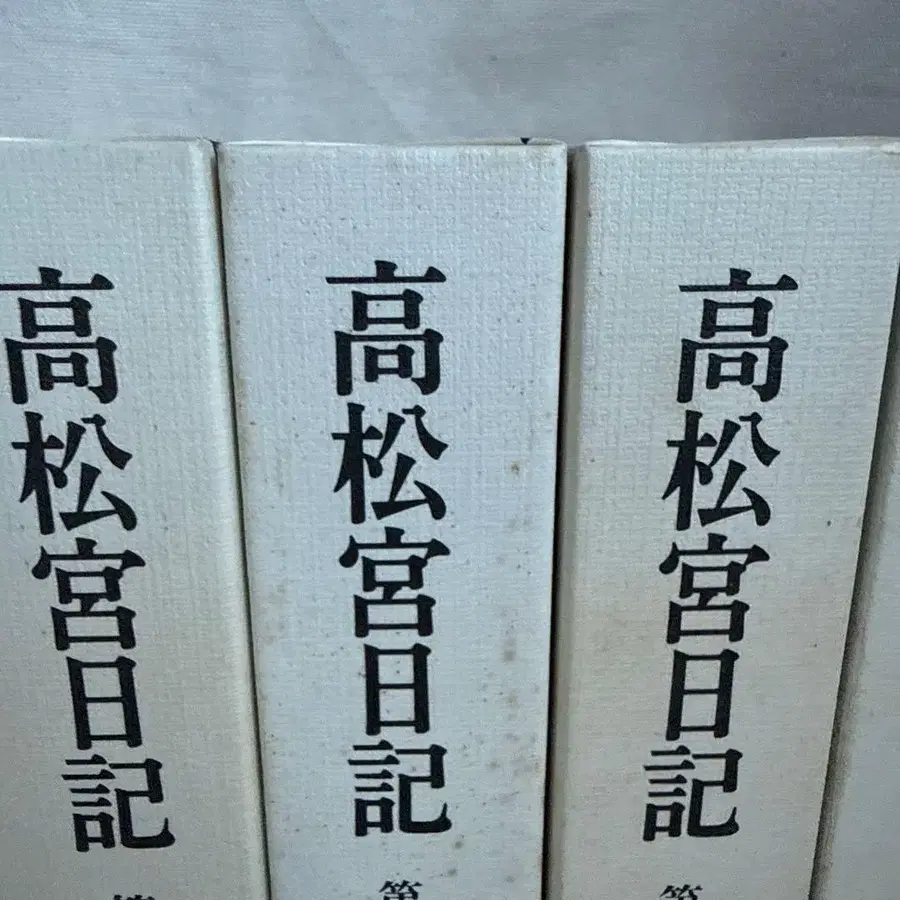 高松宮日記
高松宮日記 第
高松宮日記 第